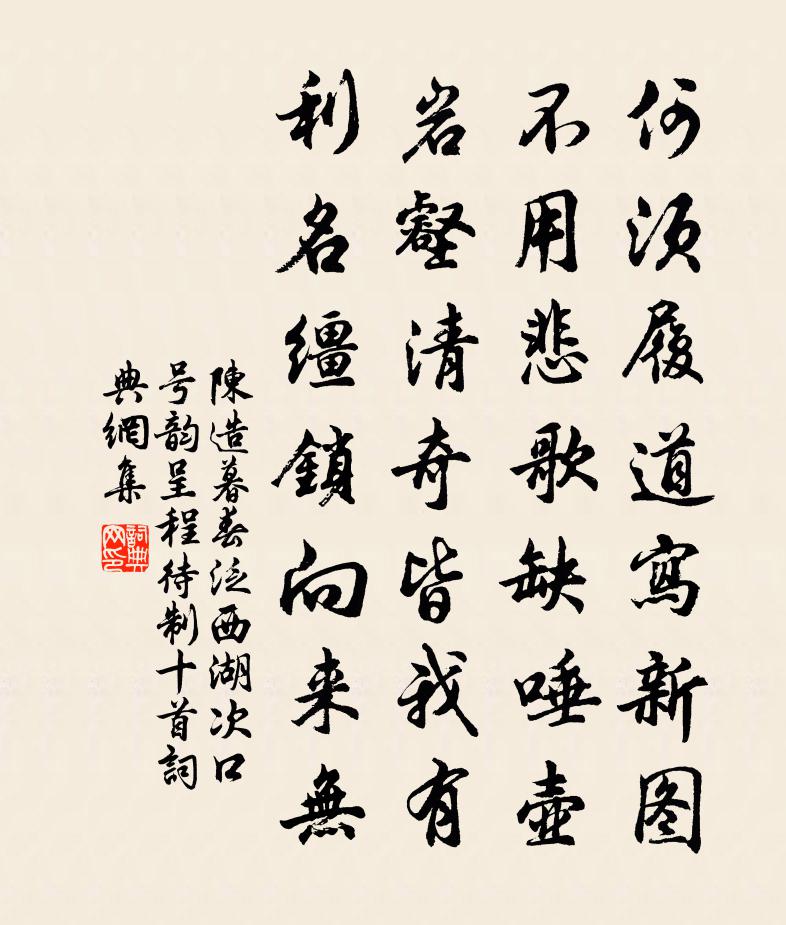 何须履道寫新图
不用悲歌缺唾壷
岩壑清奇皆我有
利名缰鎖向来無
陳造暮春泛西湖次口
号韵呈程待制十首詞
典網集
詞典网印